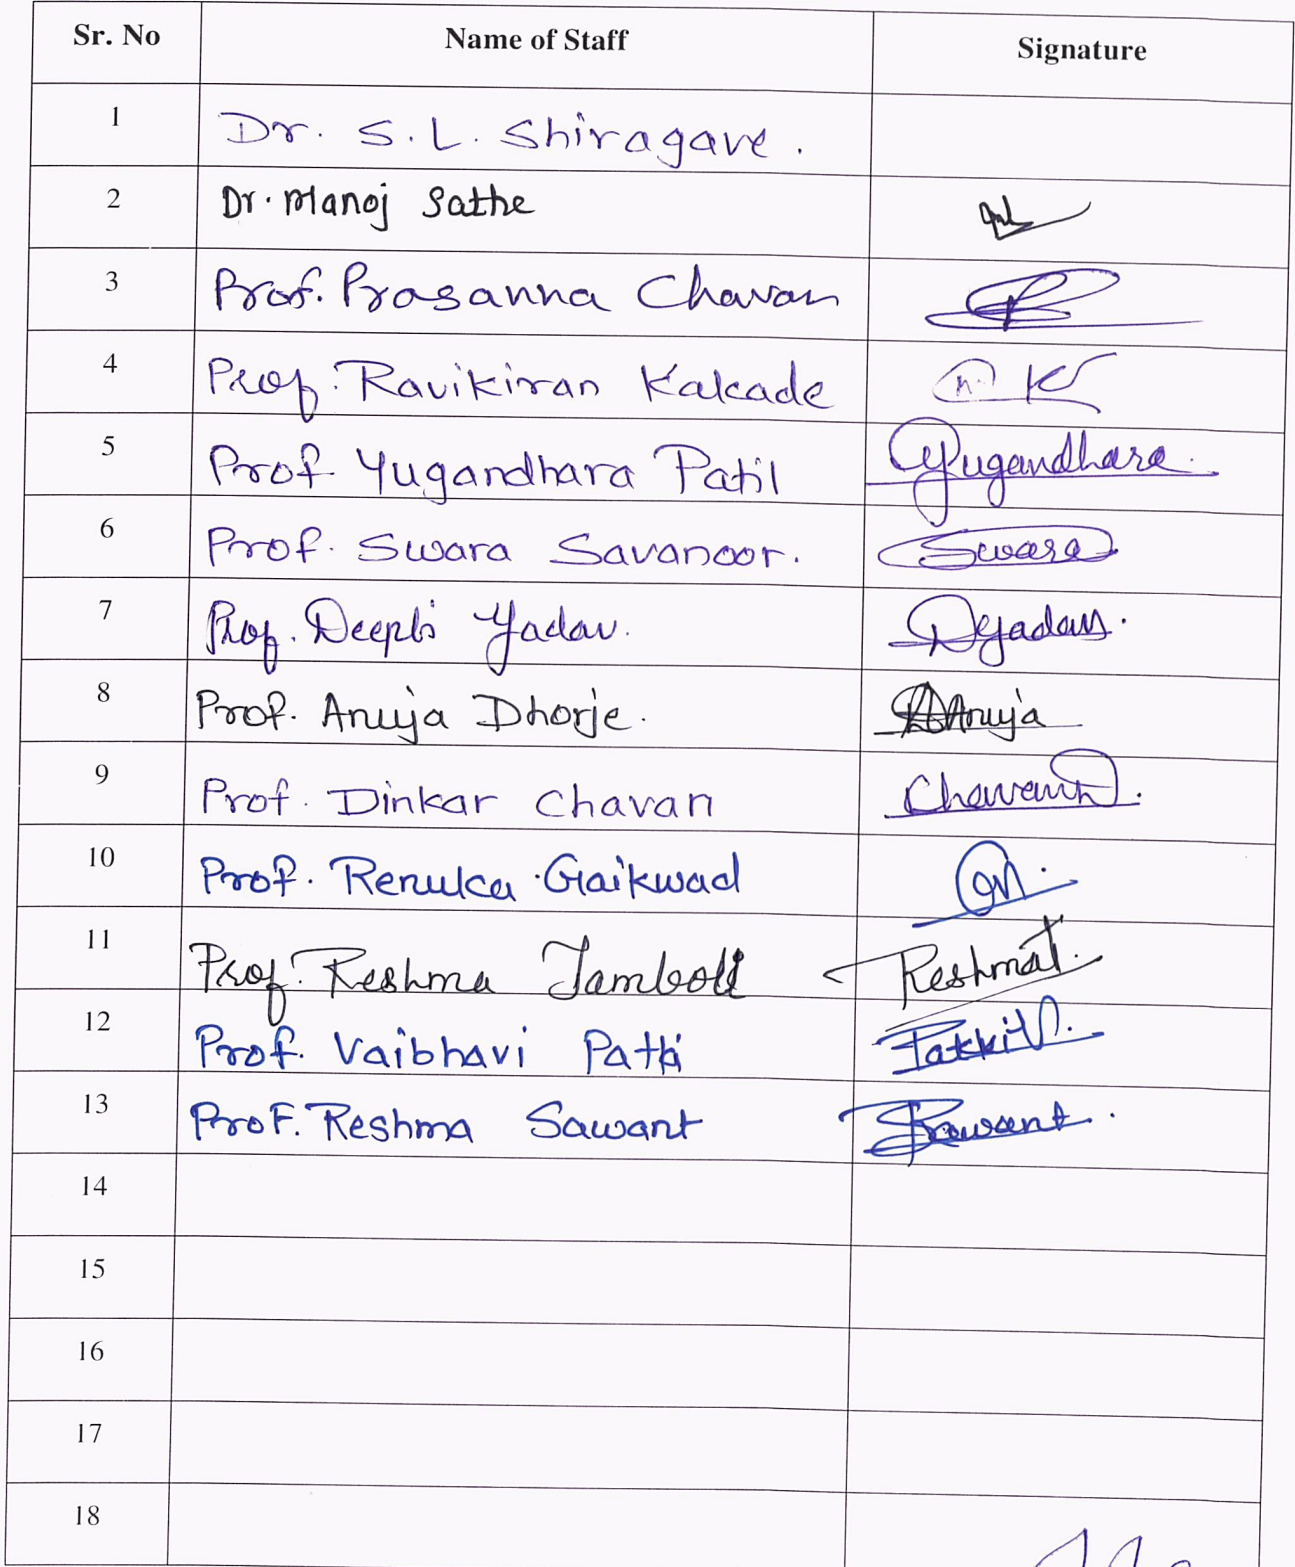 Sr. No Name of Staff Signature
1 Dr. S. L. Shiragave.
2 Dr. Manoj Sathe
3 Prof. Prasanna Chavan
4 Prof. Ravikiran Kakade K
5 Prof Yugandhara Patil Yugandhara
6 Prof. Swara Savanoor. Swara
7 Prof. Deepti Yadav. Dyadav.
8 Prof. Anuja Dhorje. Anuja
9 Prof. Dinkar Chavan Chavan
10 Prof. Renuka Gaikwad
11 Prof. Reshma Tamboli ReshmaT.
12 Prof. Vaibhavi Patki Patki V.
13 Prof. Reshma Sawant Sawant.
14
15
16
17
18